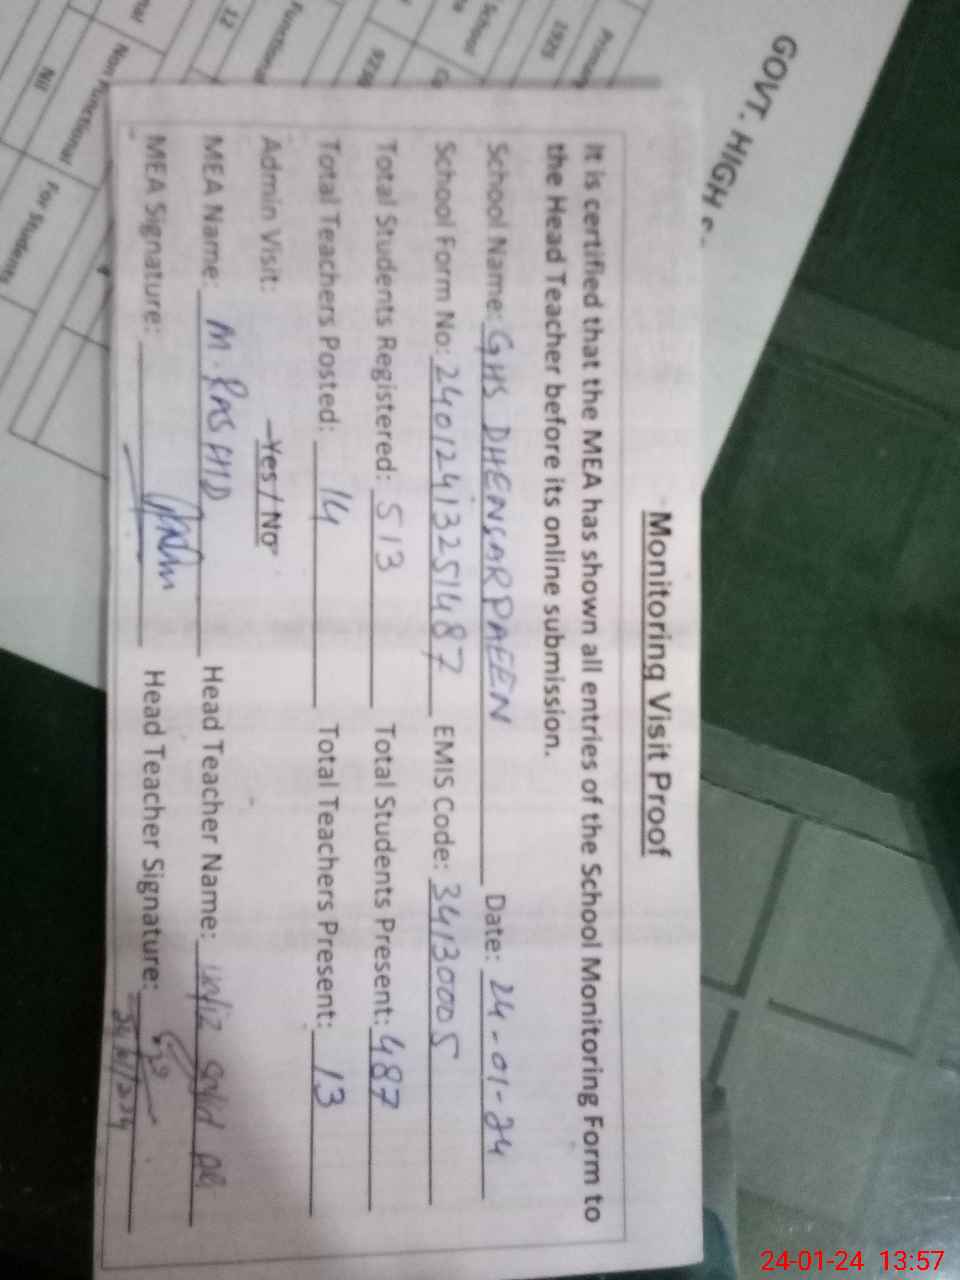 Monitoring Visit Proof
It is certified that the MEA has shown all entries of the School Monitoring Form to
the Head Teacher before its online submission.
School Name: GHS DHENGAR PAEEN Date: 24-01-24
School Form No: 24012413251487 EMIS Code: 34130005
Total Students Registered: 513 Total Students Present: 487
Total Teachers Posted: 14 Total Teachers Present: 13
Admin Visit: Yes / No
MEA Name: M. RASHID Head Teacher Name:
MEA Signature: Head Teacher Signature:
GOVT. HIGH
School
Non Functional
Nil
For Students
12
24-01-24 13:57